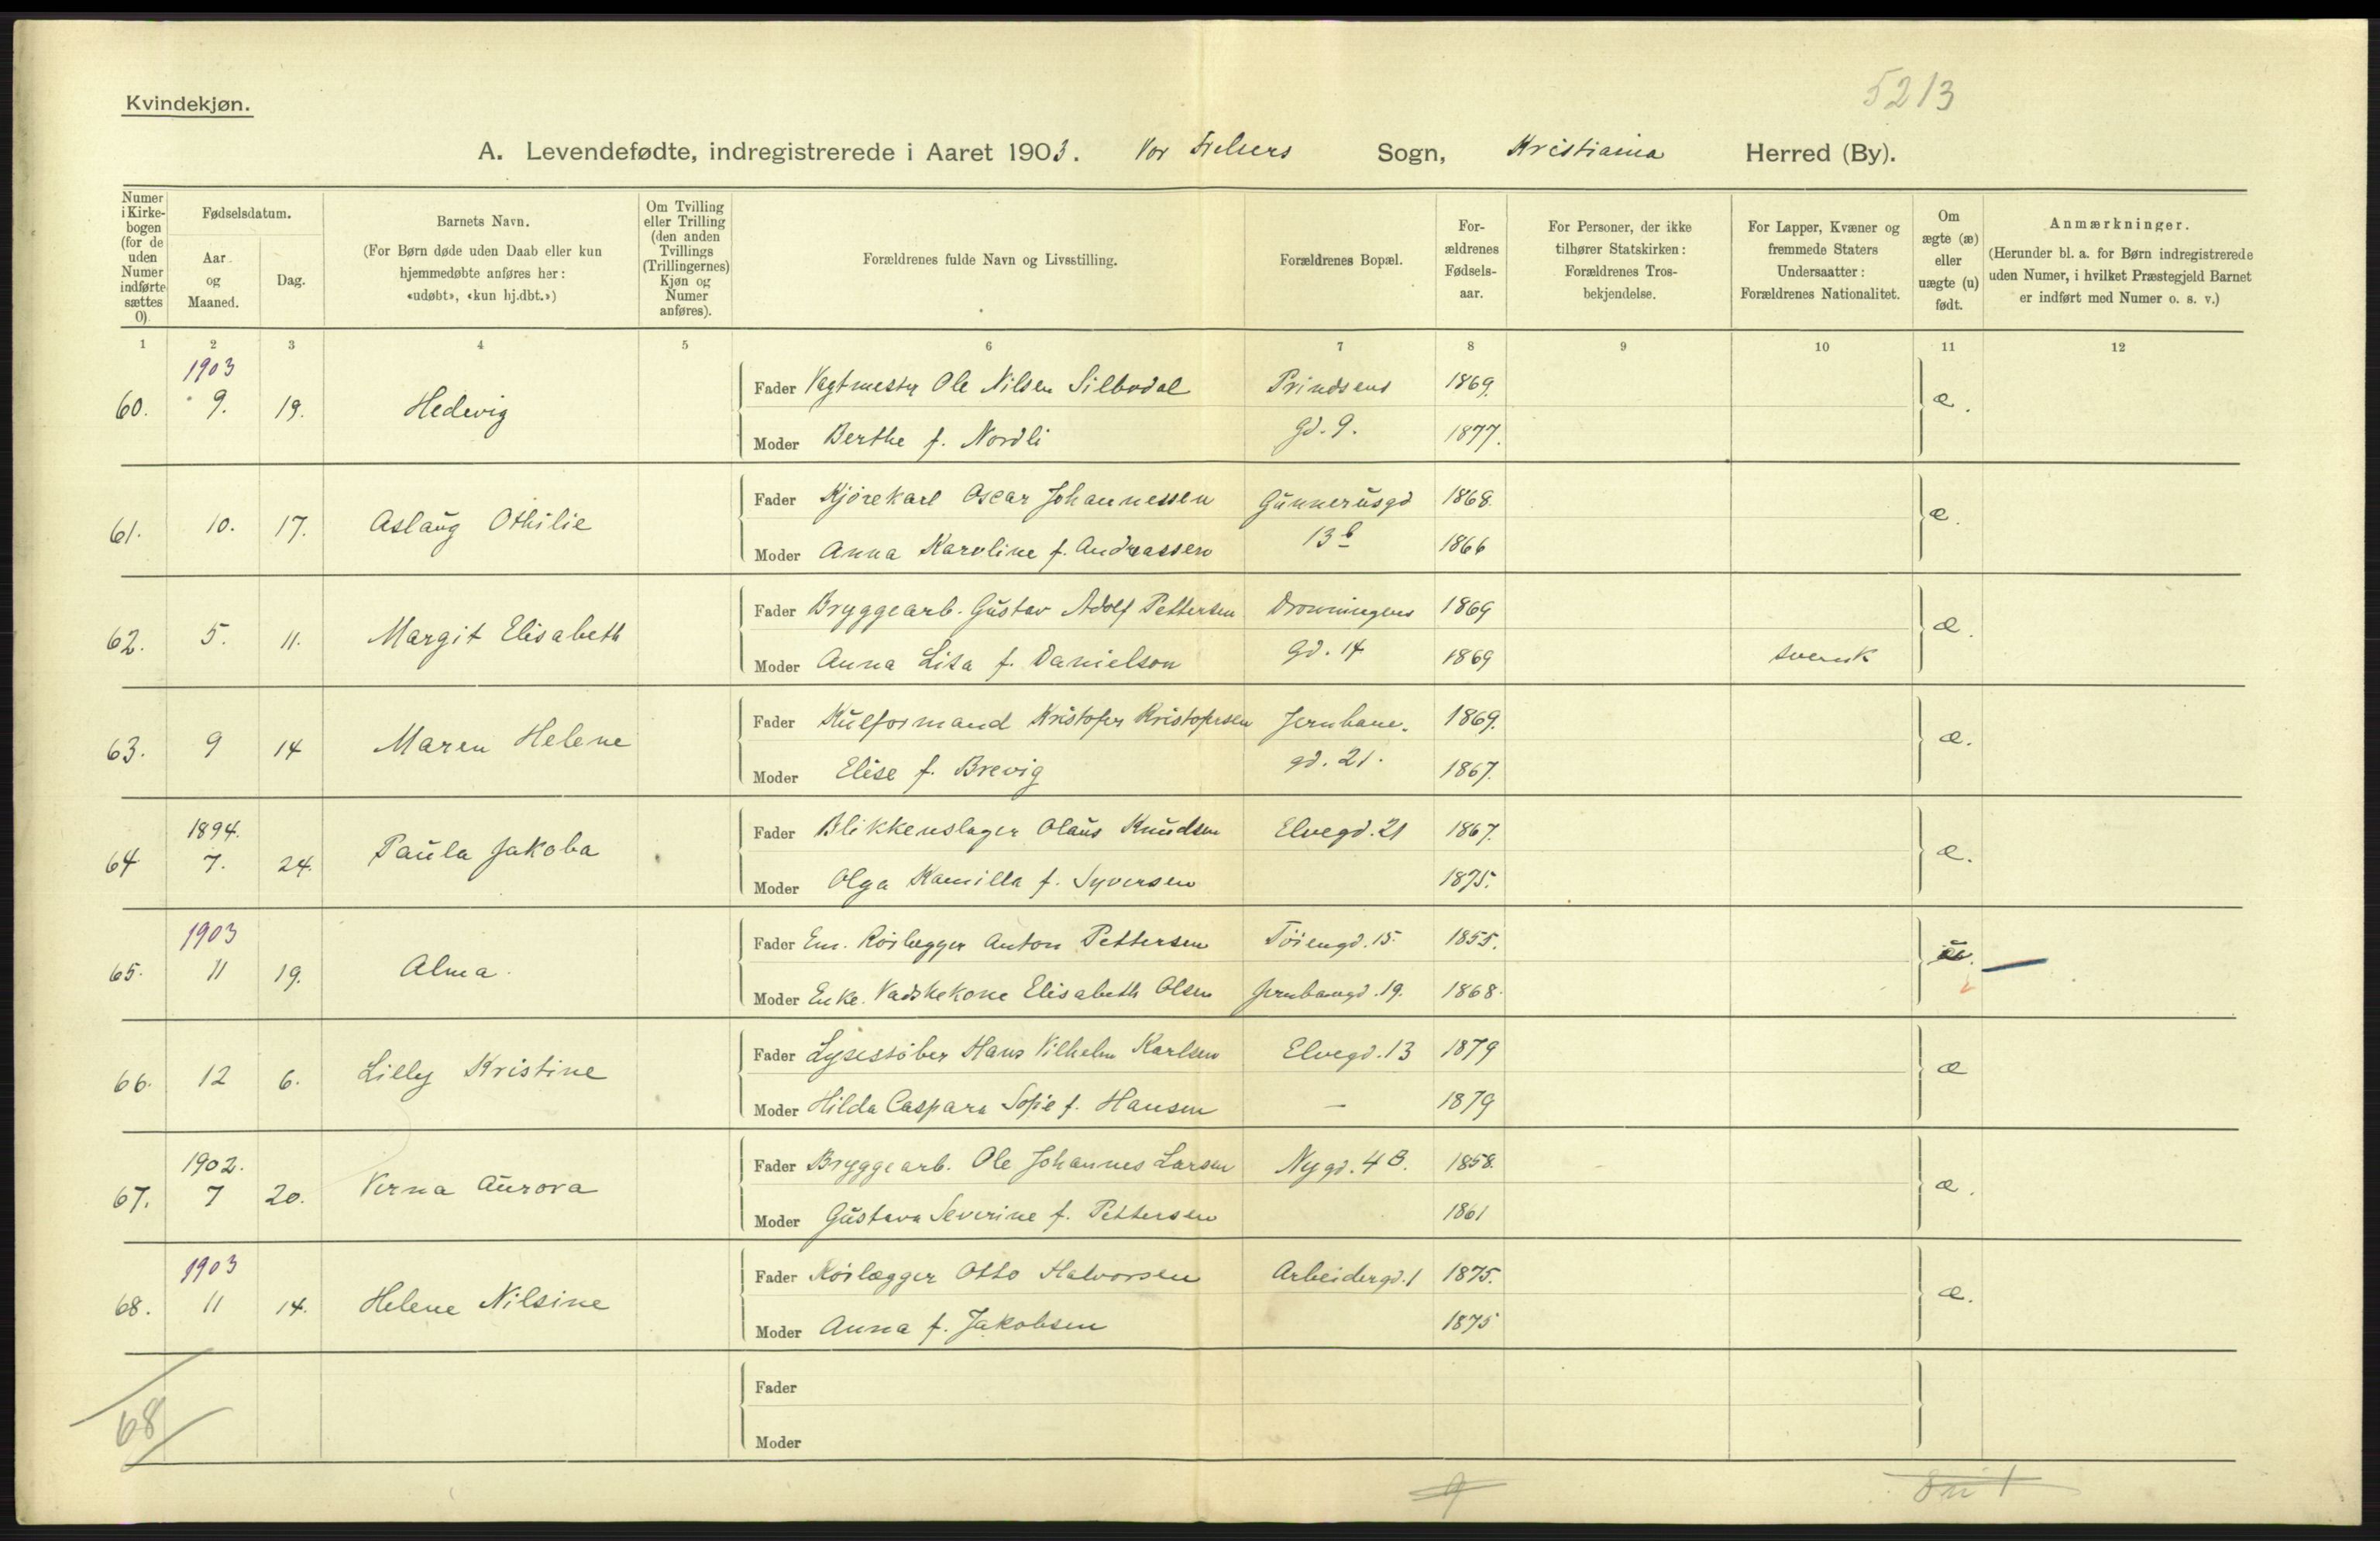 5213
Kvindekjøn.
A. Levendefødte, indregistrerede i Aaret 1903. Vor Frelsers Sogn, Kristiania Herred (By).
Numer i Kirkebogen (for de uden Numer indførte sættes 0).
Fødselsdatum.
Aar og Maaned.
Dag.
Barnets Navn.
(For Børn døde uden Daab eller kun hjemmedøbte anføres her: «udøbt», «kun hj.dbt.»)
Om Tvilling eller Trilling (den anden Tvillings (Trillingernes) Kjøn og Numer anføres).
Forældrenes fulde Navn og Livsstilling.
Forældrenes Bopæl.
Forældrenes Fødselsaar.
For Personer, der ikke tilhører Statskirken: Forældrenes Trosbekjendelse.
For Lapper, Kvæner og fremmede Staters Undersaatter: Forældrenes Nationalitet.
Om ægte (æ) eller uægte (u) født.
Anmærkninger.
(Herunder bl. a. for Børn indregistrerede uden Numer, i hvilket Præstegjeld Barnet er indført med Numer o. s. v.)
1 2 3 4 5 6 7 8 9 10 11 12
1903
Fader Vagtmester Ole Nilsen Silbodal Prindsens 1869.
60. 9. 19. Hedevig æ.
Moder Berthe f. Nordli gd. 9. 1877.
Fader Kjørekarl Oscar Johannessen Gunnerusgd 1868.
61. 10. 17. Aslaug Othilie æ.
Moder Anna Karoline f. Andreassen 13 b 1866
Fader Bryggearb. Gustav Adolf Pettersen Dronningens 1869
62. 5. 11. Margit Elisabeth æ.
Moder Anna Lisa f. Danielson gd. 14 1869 svensk
Fader Kulformand Kristofer Kristofersen Jernbane- 1869.
63. 9 14 Maren Helene æ.
Moder Elise f. Brevig gd. 21. 1867.
1894.
Fader Blikkenslager Olaus Knudsen Elvegd. 21 1867.
64 7. 24. Paula Jakoba æ.
Moder Olga Kamilla f. Syversen 1875.
1903
Fader Em. Rörlægger Anton Pettersen Töiengd. 15. 1855.
65. 11 19. Alma.
Moder Enke. Vadskekone Elisabeth Olsen Jernbangd. 19. 1868.
Fader Lysestöber Hans Vilhelm Karlsen Elvegd. 13 1879
66. 12 6. Lilly Kristine æ
Moder Hilda Caspara Sofie f. Hansen — 1879
1902.
Fader Bryggearb. Ole Johannes Larsen Nygd. 4 B. 1858.
67. 7 20. Verna Aurora æ.
Moder Gustava Severine f. Pettersen 1861
1903
Fader Rörlægger Otto Halvorsen Arbeidergd. 1 1875.
68. 11 14. Helene Nilsine æ.
Moder Anna f. Jakobsen 1875
Fader
68
Moder
9